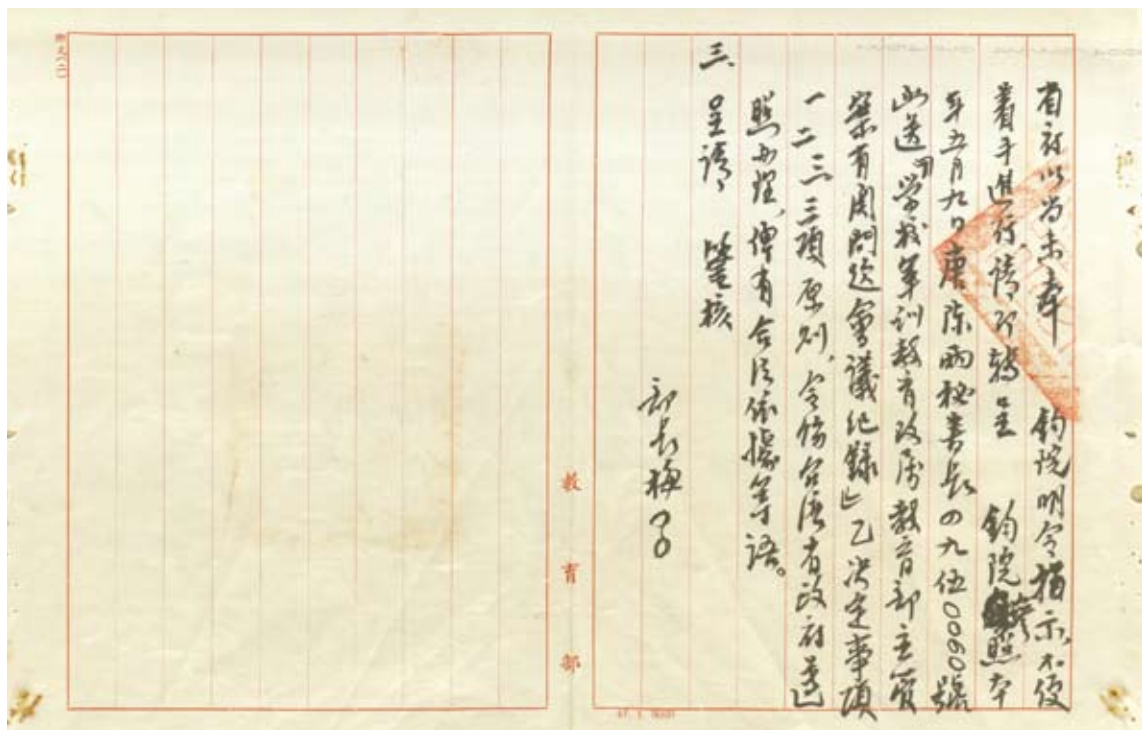 省府以尚未奉　鈞院明令指示，不便
著手進行，請即轉呈　鈞院參照本
年五月九日唐陳兩秘書長四九伍0060號
函送「學校軍訓教育改隸教育部主管
案有關問題會議紀錄」乙決定事項
一二三三項原則，令飭台灣省政府遵
照辦理，俾有合法依據等語。
三、呈請　鑒核
部長梅
教育部